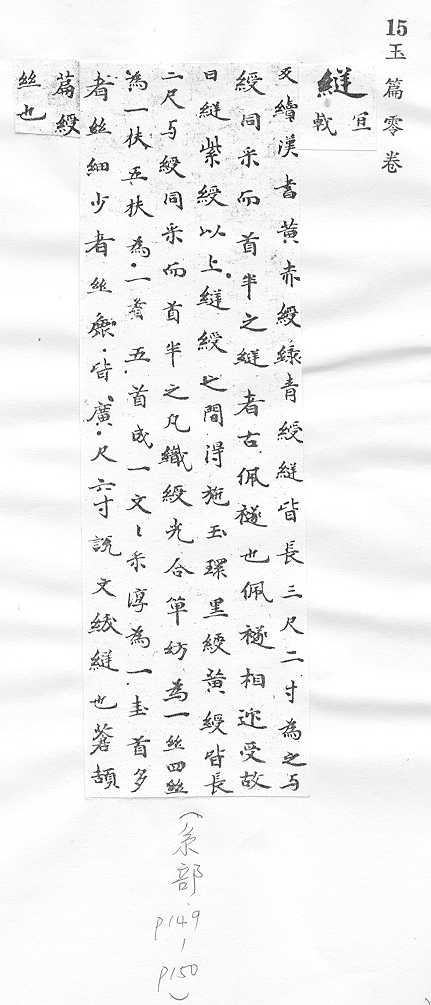 15 玉篇零卷
縌 宜戟
反續漢書黃赤綬緑青綬縌皆長三尺二寸為之与
綬同采而首半之縌者古佩襚也佩襚相迎受故
曰縌紫綬以上縌綬之間得施玉環黑綬黃綬皆長
二尺与綬同采而首半之凡織綬光合單紡為一絲四絲
為一扶五扶為一首五首成一文々采淳為一圭首多
者絲細少者絲麁皆廣尺六寸説文綬縌也蒼頡
篇綬
絲也
(糸部. p149-p150)